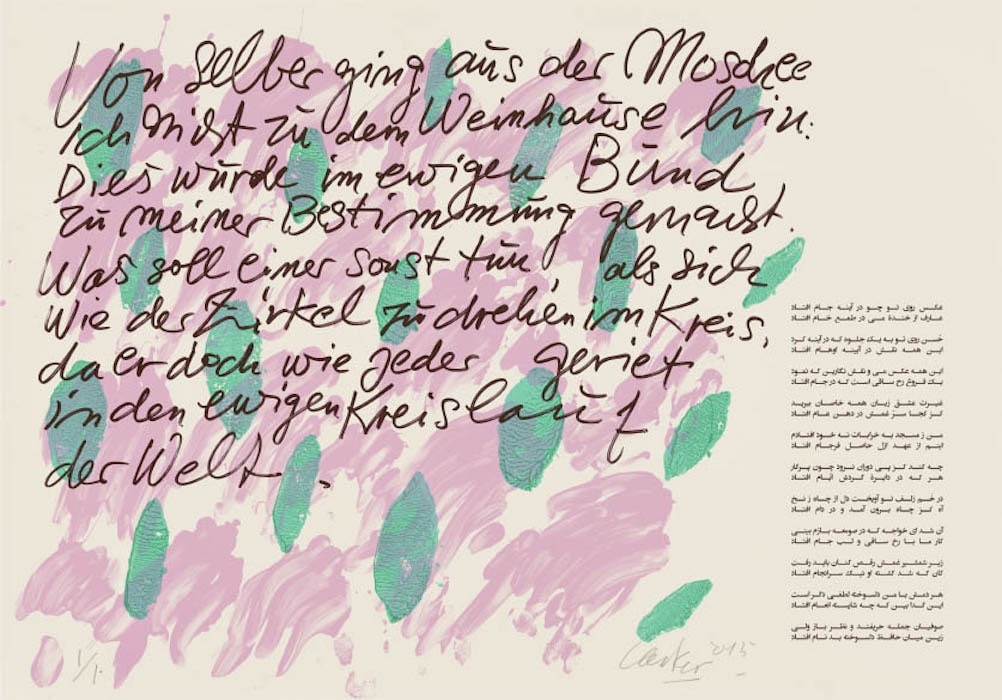 Von selber ging aus der Moschee
ich nicht zu dem Weinhause hin:
Dies wurde im ewigen Bund
zu meiner Bestimmung gemacht.
Was soll einer sonst tun, als sich
wie der Zirkel zu drehen im Kreis,
da er doch wie jeder geriet
in den ewigen Kreislauf
der Welt.
عکس روی تو چو در آینه جام افتاد
عارف از خندهٔ می در طمع خام افتاد
حسن روی تو به یک جلوه که در آینه کرد
این همه نقش در آیینه اوهام افتاد
این همه عکس می و نقش نگارین که نمود
یک فروغ رخ ساقی است که در جام افتاد
غیرت عشق زبان همه خاصان ببرید
کز کجا سرّ غمش در دهن عام افتاد
من ز مسجد به خرابات نه خود افتادم
اینم از عهد ازل حاصل فرجام افتاد
چه کند کز پی دوران نرود چون پرگار
هر که در دایرهٔ گردش ایّام افتاد
در خم زلف تو آویخت دل از چاه ز نخ
آه کز چاه برون آمد و در دام افتاد
آن شد ای خواجه که در صومعه بازم بینی
کار ما با رخ ساقی و لب جام افتاد
زیر شمشیر غمش رقص کنان باید رفت
کان که شد کشته او نیک سرانجام افتاد
هر دمش با من دلسوخته لطفی دگر است
این گدا بین که چه شایسته انعام افتاد
صوفیان جمله حریفند و نظر باز ولی
زین میان حافظ دلسوخته بد نام افتاد
2015